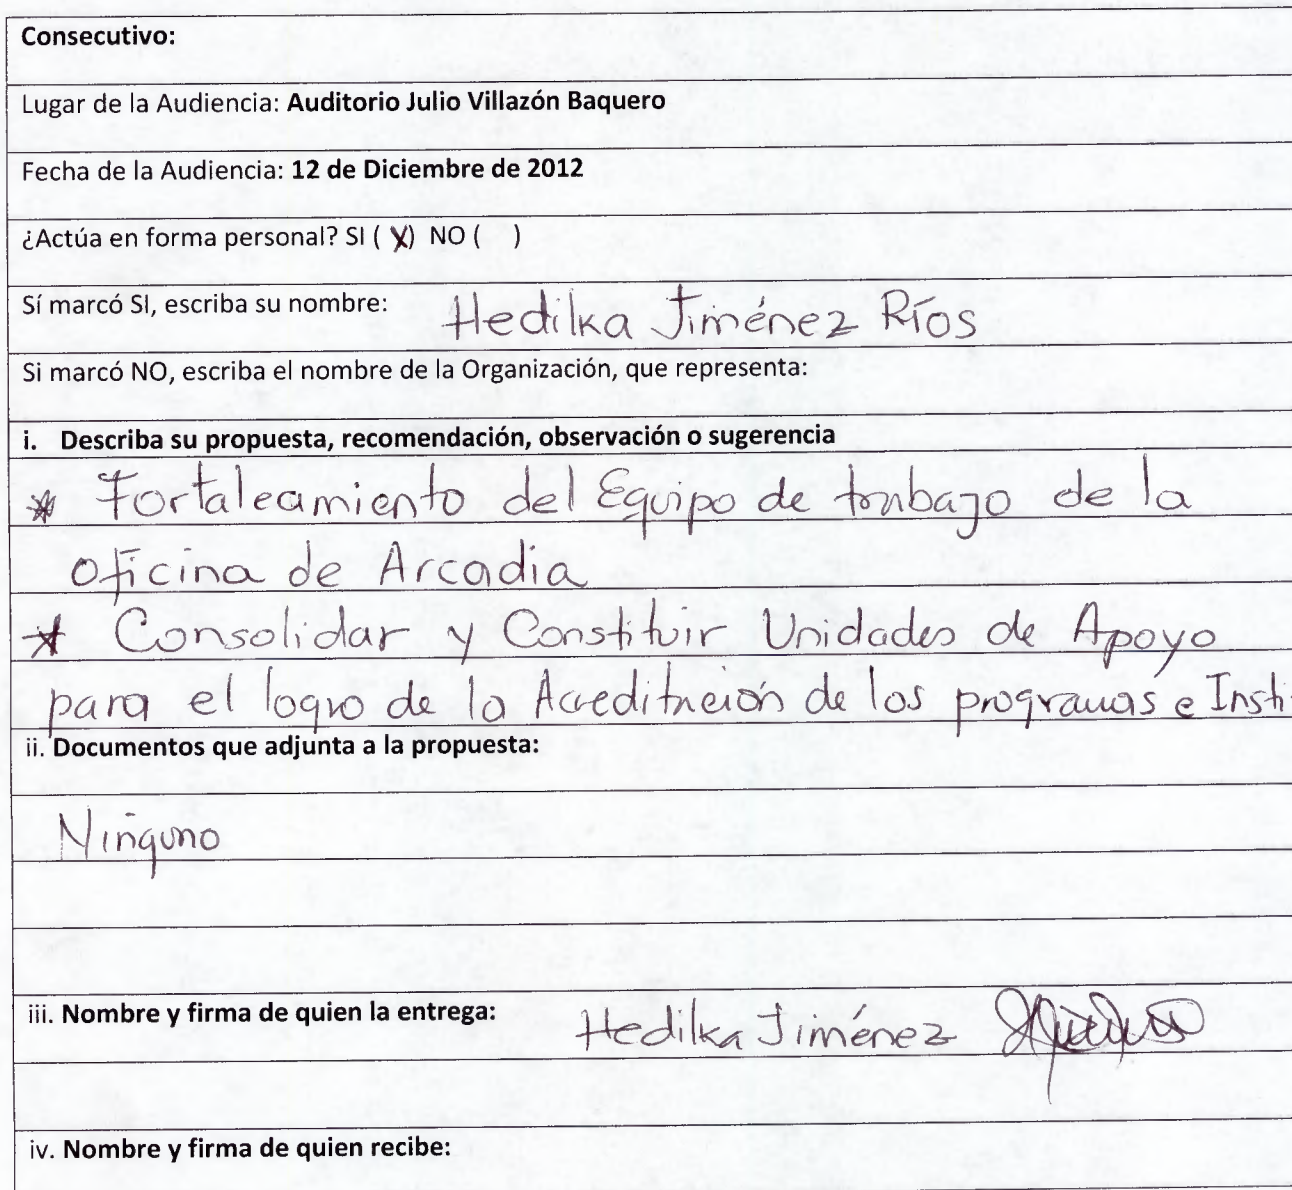 Consecutivo:
Lugar de la Audiencia: Auditorio Julio Villazón Baquero
Fecha de la Audiencia: 12 de Diciembre de 2012
¿Actúa en forma personal? SI ( X) NO (   )
Sí marcó SI, escriba su nombre: Hedilka Jiménez Ríos
Si marcó NO, escriba el nombre de la Organización, que representa:
i. Describa su propuesta, recomendación, observación o sugerencia
* Fortaleamiento del Equipo de trabajo de la
oficina de Arcadia
* Consolidar y Constituir Unidades de Apoyo
para el logro de la Acreditación de los programas e Insti
ii. Documentos que adjunta a la propuesta:
Ninguno
iii. Nombre y firma de quien la entrega: Hedilka Jiménez
iv. Nombre y firma de quien recibe: